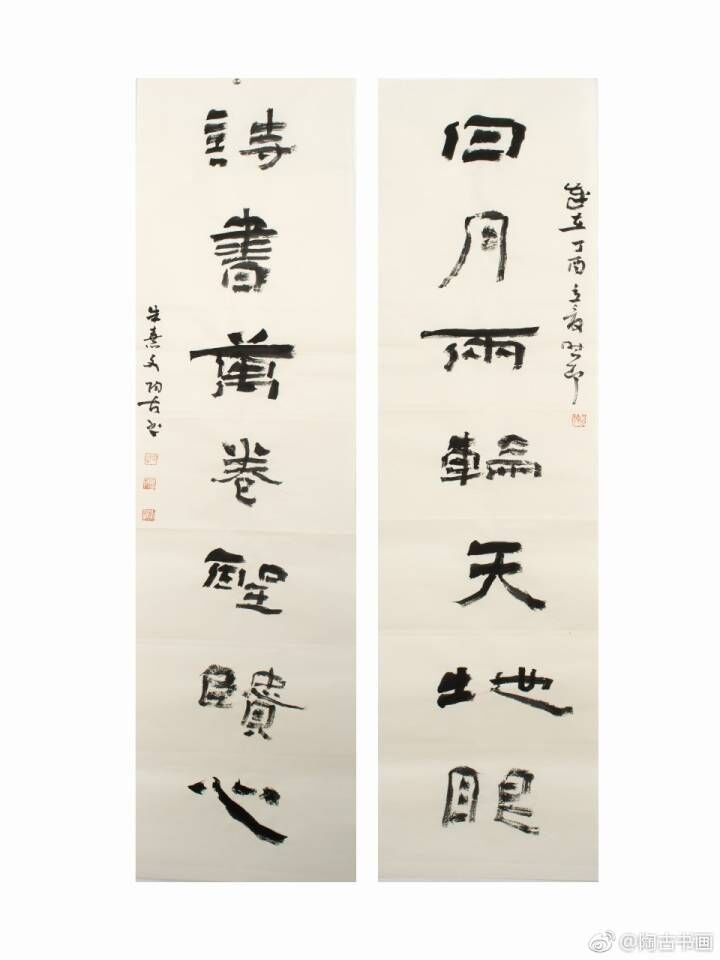 日月兩輪天地眼
歲在丁酉立夏時節
詩書萬卷聖賢心
朱熹 陶古书
@陶古书画